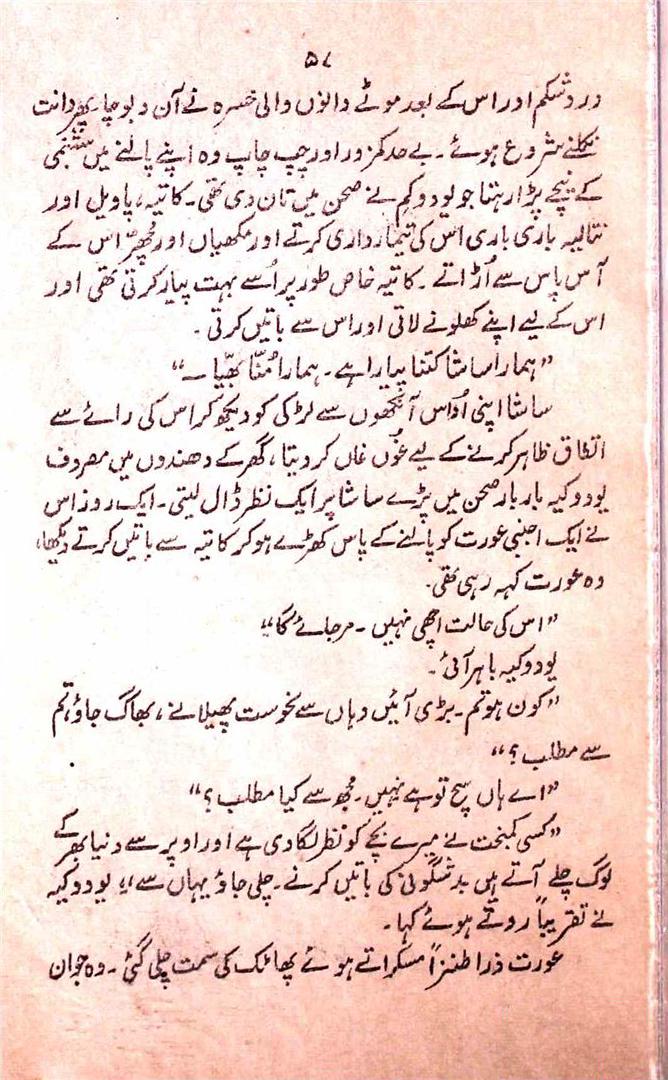 ۵۷
درد شکم اور اس کے بعد موٹے دانوں والی خسرہ نے آن دبوچا، پھر دانت
نکلنے شروع ہوئے۔ بے حد کمزور اور چپ چاپ وہ اپنے پالنے میں
کے نیچے پڑا رہتا جو یودوکیم نے صحن میں تان دی تھی۔ کاتیہ، پاویل اور
نتالیہ باری باری اس کی تیمارداری کرتے اور مکھیاں اور مچھّر اس کے
آس پاس سے اُڑاتے۔ کاتیہ خاص طور پر اُسے بہت پیار کرتی تھی اور
اس کے لیے اپنے کھلونے لاتی اور اس سے باتیں کرتی۔
”ہمارا ساشا کتنا پیارا ہے۔ ہمارا مُنّا بھّیا ــ“
ساشا اپنی اُداس آنکھوں سے لڑکی کو دیکھ کر اس کی رائے سے
اتفاق ظاہر کرنے کے لیے غُوں غاں کر دیتا، گھر کے دھندوں میں مصروف
یودوکیہ بار بار صحن میں پڑے ساشا پر ایک نظر ڈال لیتی۔ ایک روز اس
نے ایک اجنبی عورت کو پالنے کے پاس کھڑے ہو کر کاتیہ سے باتیں کرتے دیکھا،
وہ عورت کہہ رہی تھی۔
”اس کی حالت اچھی نہیں۔ مر جائے گا“
یودوکیہ باہر آئی۔
”کون ہو تم۔ بڑی آئیں وہاں سے نحوست پھیلانے، بھاگ جاؤ، تم
سے مطلب؟“
”اے ہاں سچ تو ہے نہیں۔ مجھ سے کیا مطلب؟“
”کسی کمبخت نے میرے بچے کو نظر لگا دی ہے اور اوپر سے دنیا بھر کے
لوگ چلے آتے ہیں بدشگونی کی باتیں کرنے۔ چلی جاؤ یہاں سے“ یودوکیہ
نے تقریباً روتے ہوئے کہا۔
عورت ذرا طنزاً مسکراتے ہوئے پھاٹک کی سمت چلی گئی۔ وہ جوان